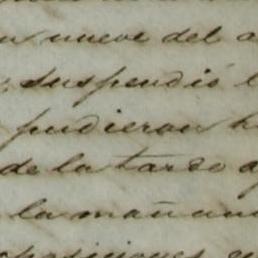 nueve del
suspendió
pudieron
de la tarde
la mañana